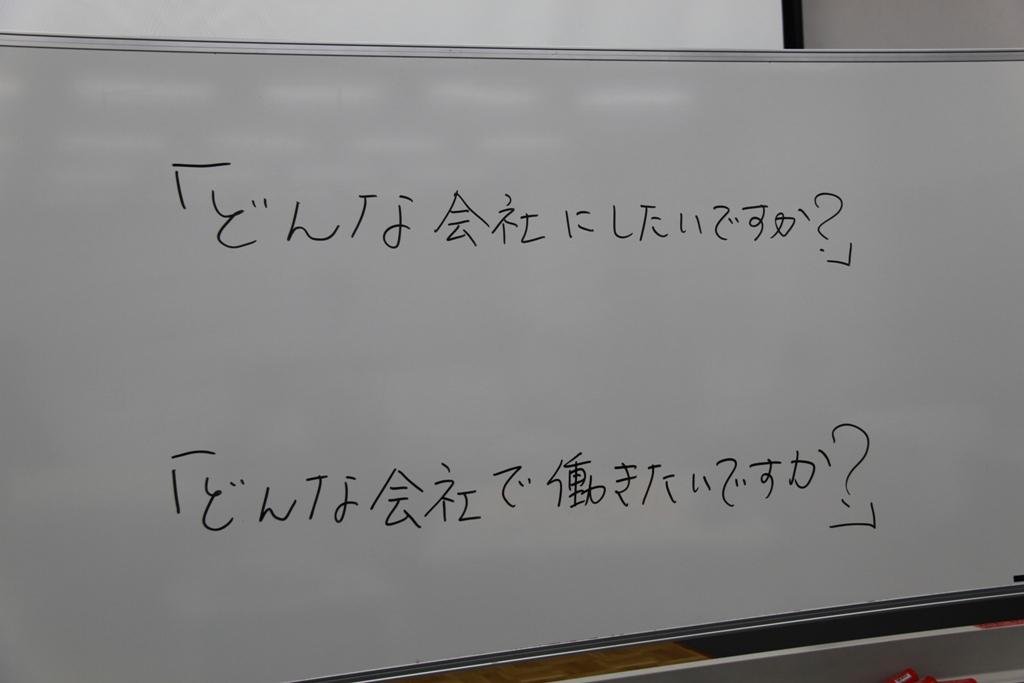 「どんな会社にしたいですか?」
「どんな会社で働きたいですか?」